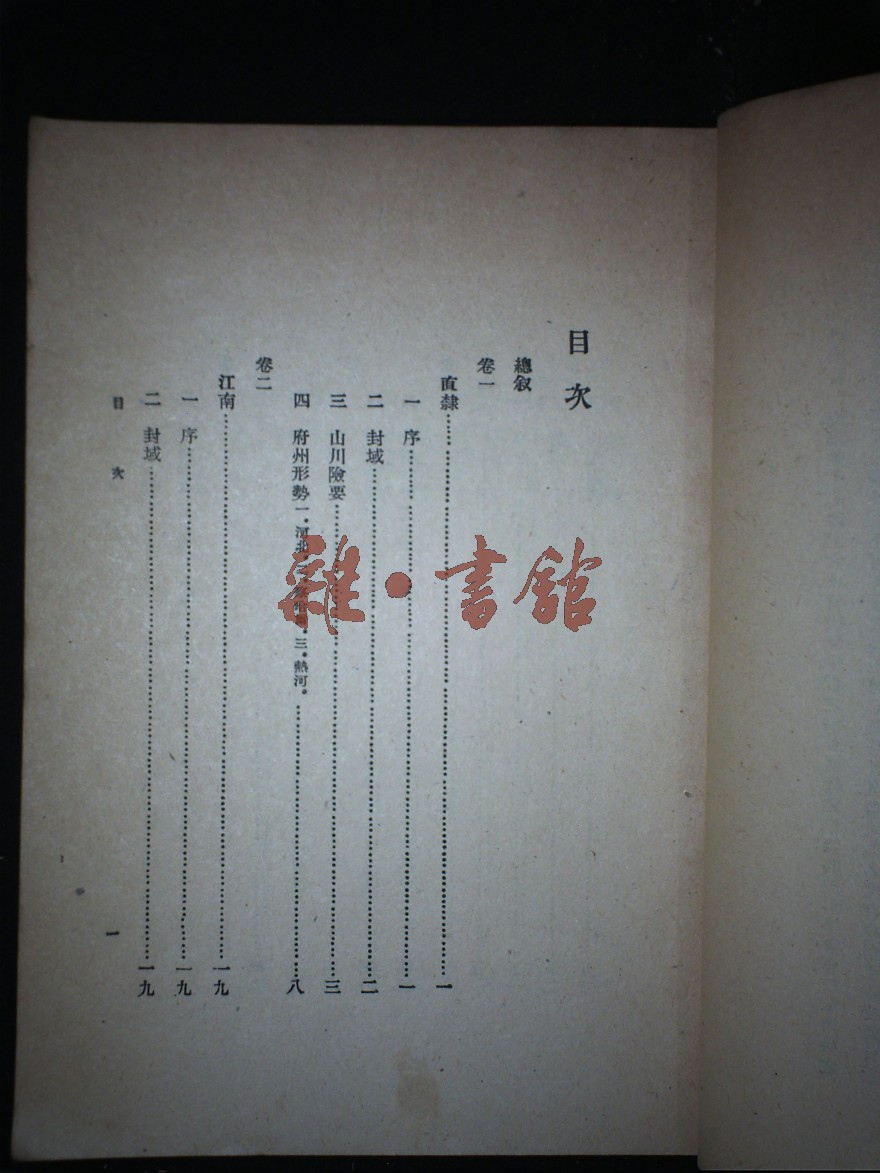 目次
總敘
卷一
直隸……一
一 序……一
二 封域……二
三 山川險要……三
四 府州形勢 一·河北·二· 三·熱河·……八
卷二
江南……一九
一 序……一九
二 封域……一九
目次
一
雜·書館